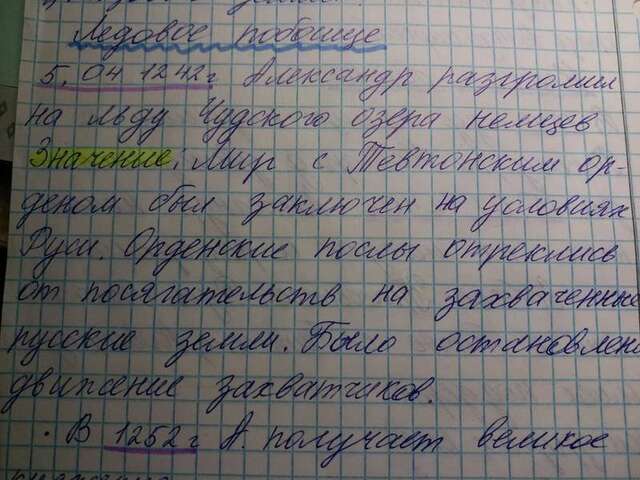 Ледовое побоище
5.04 1242 г Александр разгромил
на льду Чудского озера немцев
Значение: Мир с Тевтонским ор-
деном был заключен на условиях
Руси. Орденские послы отреклись
от посягательств на захваченные
русские земли. Было остановлено
движение захватчиков.
· В 1252 г А. получает великое